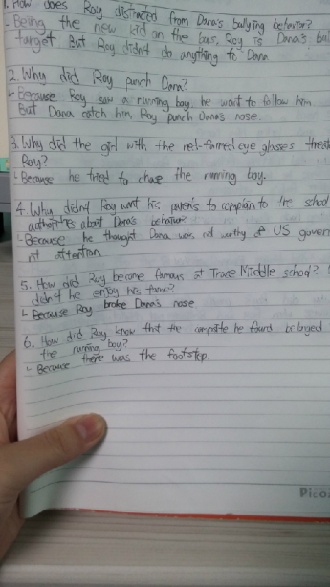 1. How does Roy distracted from Dana's bullying behavior?
- Being the new kid on the bus, Roy is Dana's bu
target But Roy didn't do anything to Dana
2. Why did Roy punch Dana?
- Because Roy saw a running boy, he want to follow him
But Dana catch him, Roy punch Dana's nose.
3. Why did the girl with the red-framed eye glasses threat
Roy?
Because he tried to chase the running boy.
4. Why didn't Roy want his parents to complain to the school
authorities about Dana's behavior?
Because he thought Dana was not worthy of US govern
nt attention.
5. How did Roy become famous at Trace Middle school?
didn't he enjoy his fame?
Because Roy broke Dana's nose
6. How did Roy know that the campsite he found belonged
the running boy?
Because there was the footstep.
Pico